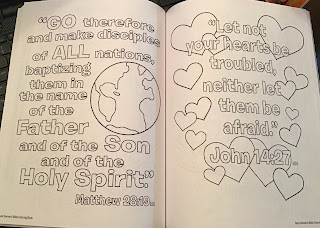 "GO therefore
and make disciples
of ALL nations,
baptizing
them in
the name
of the
Father
and of the Son
and of the
Holy Spirit."
Matthew 28:19
"Let not
your hearts be
troubled,
neither let
them be
afraid."
John 14:27